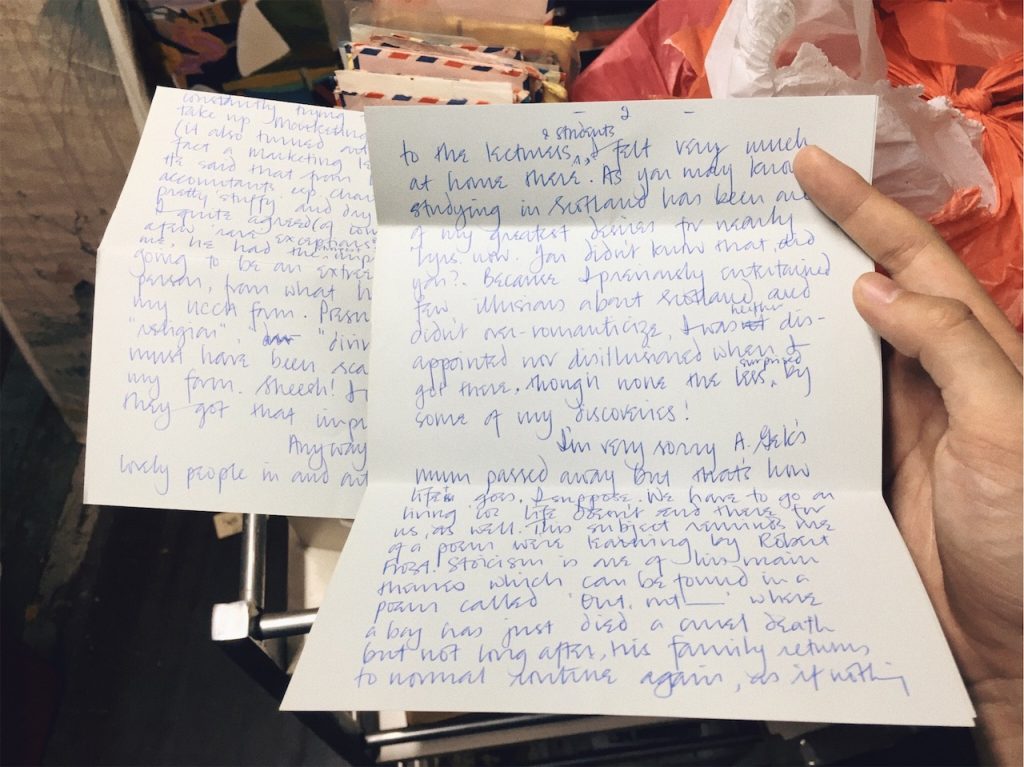 constantly trying
take up marketing
(it also turned out
fact a marketing le
He said that from
accountants
pretty stuffy and dry
I quite agreed (of
after rare exceptions
me, he had the
going to be an extre
person, from what h
my UCCA form. Presu
"religion", " "divin
must have been sca
my form. Sheesh! I
they got that impr
Anyway
lovely people in and
- 2 -
& students
to the lecturers, I felt very much
at home there. As you may know
studying in Scotland has been one
of my greatest desires for nearly
yrs. now. You didn't know that, did
you? Because I previously entertained
few illusions about Scotland and
didn't over-romanticize, I was neither dis-
appointed nor disillusioned when I
got there, though none the less, surprised by
some of my discoveries!
I'm very sorry A. Gek's
mum passed away but that's how
life goes, I suppose. We have to go on
living for life doesn't end there for
us, as well. This subject reminds me
of a poem we're learning by Robert
Frost. Stoicism is one of his main
themes which can be found in a
poem called 'Out, out—' where
a boy has just died a cruel death
but not long after, his family returns
to normal routine again, as if nothing